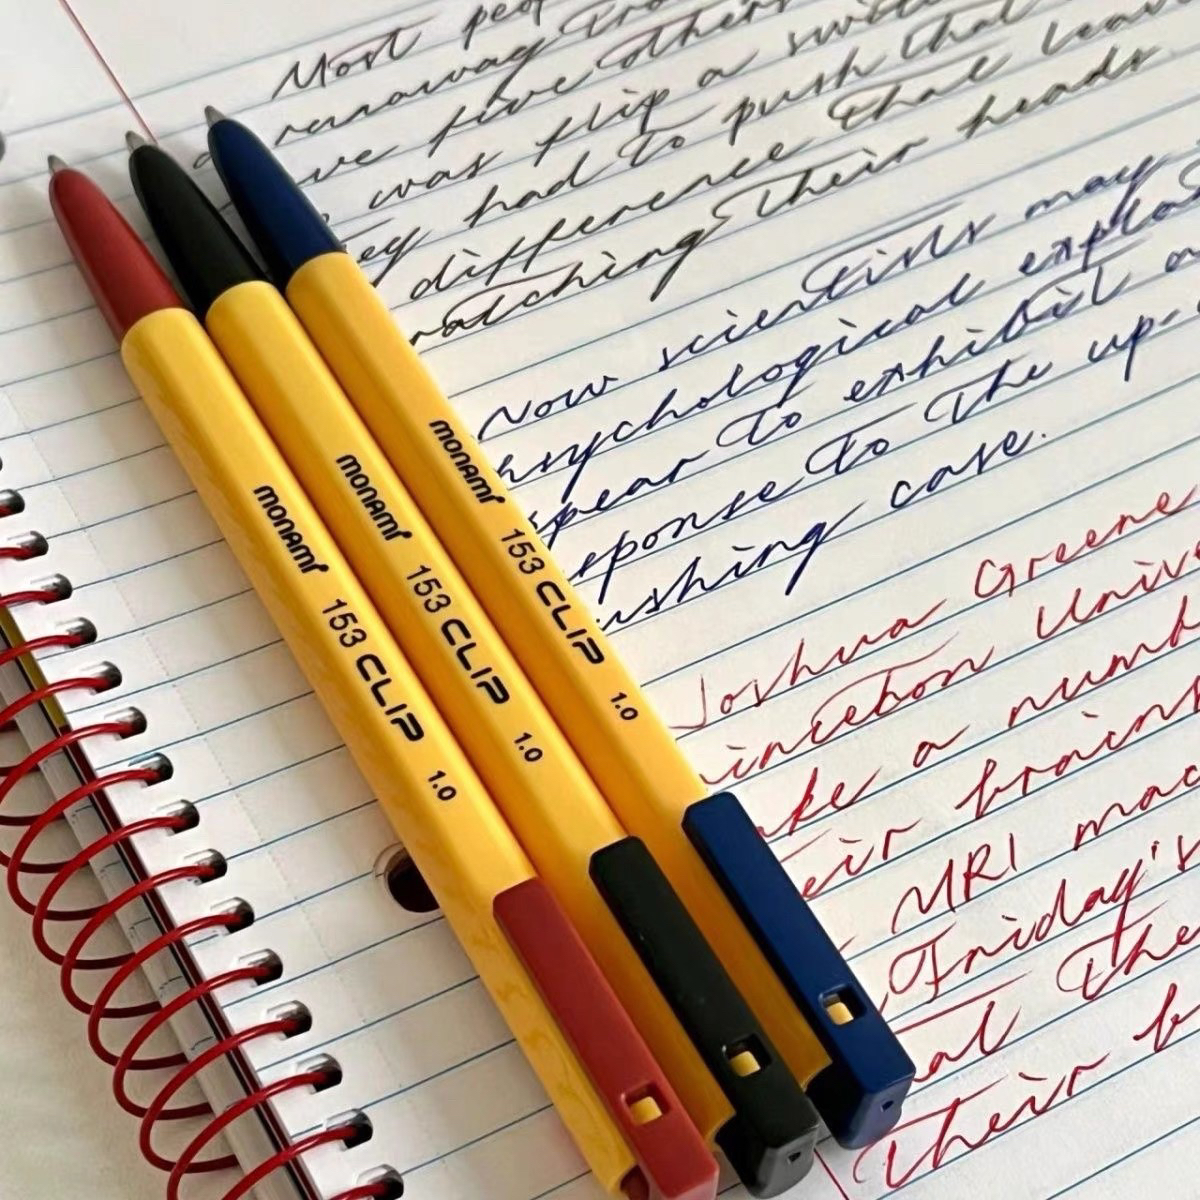 Most
runaway
five others
was flip a
had to push that
difference that
atching their heads
Now scientists may
psychological
pear to exhibit
sponse to the up-
ushing case.
Joshua Greene
inceton
ke a
eir brains
MRI
Friday's
at the
their b
monami 153 CLIP 1.0
monami 153 CLIP 1.0
monami 153 CLIP 1.0